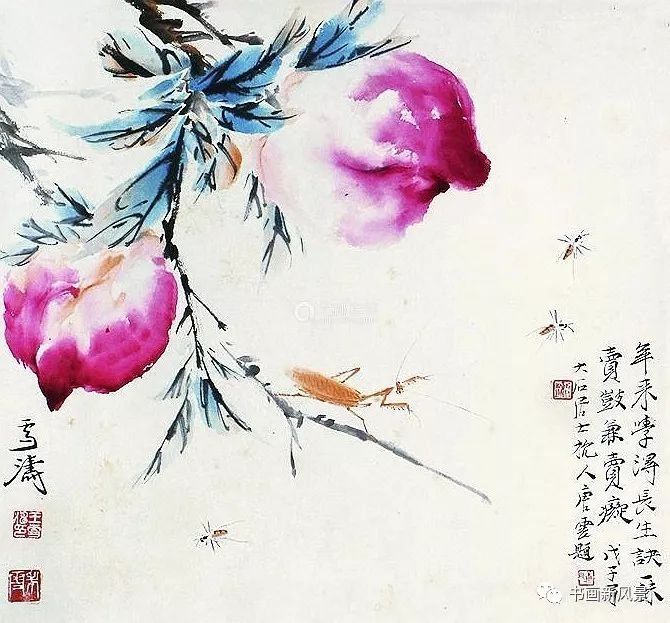 年来學得長生訣一味
賣獃兼賣癡 戊子夏
大石居士杭人唐雲題
雪濤
书画新风景